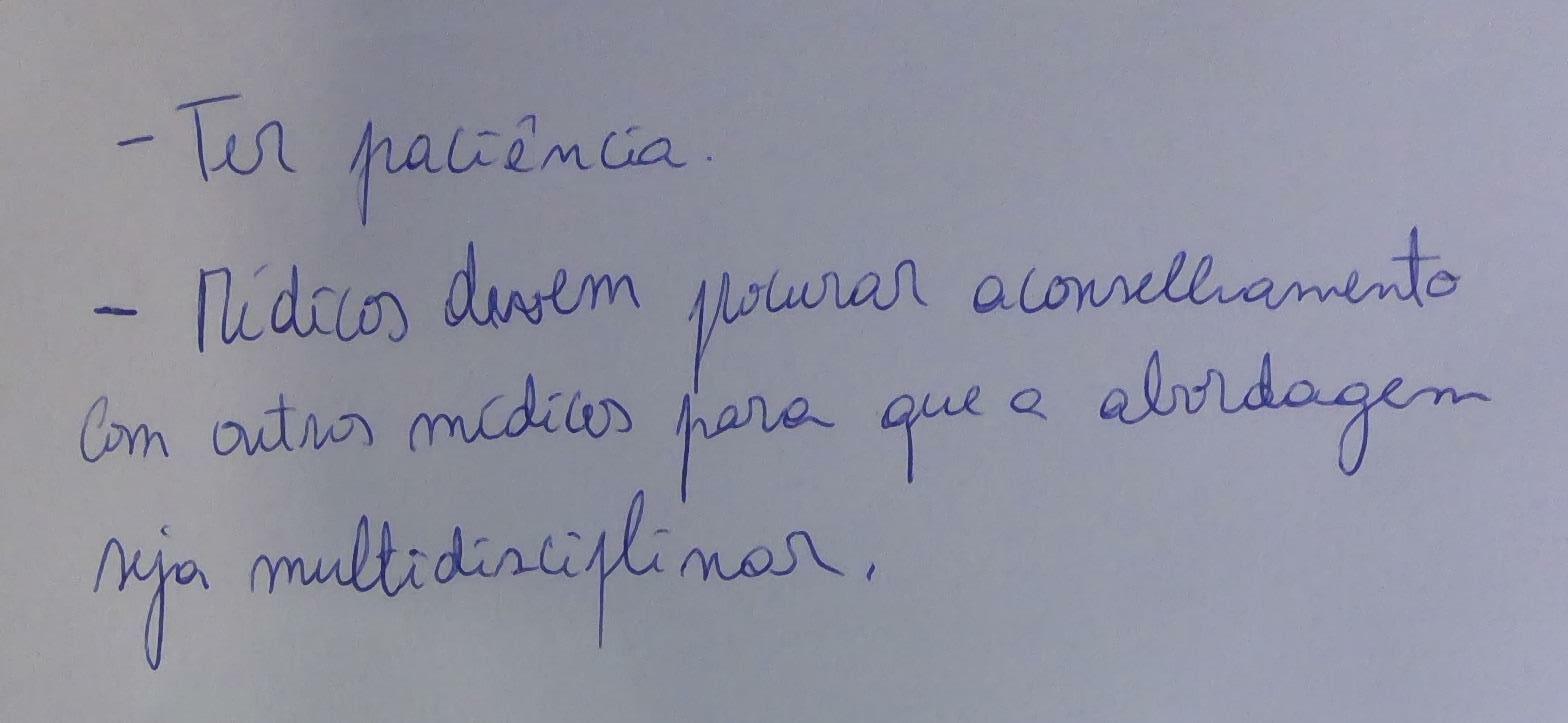 - Ter paciência.
- Médicos devem procurar aconselhamento
com outros médicos para que a abordagem
seja multidisciplinar.